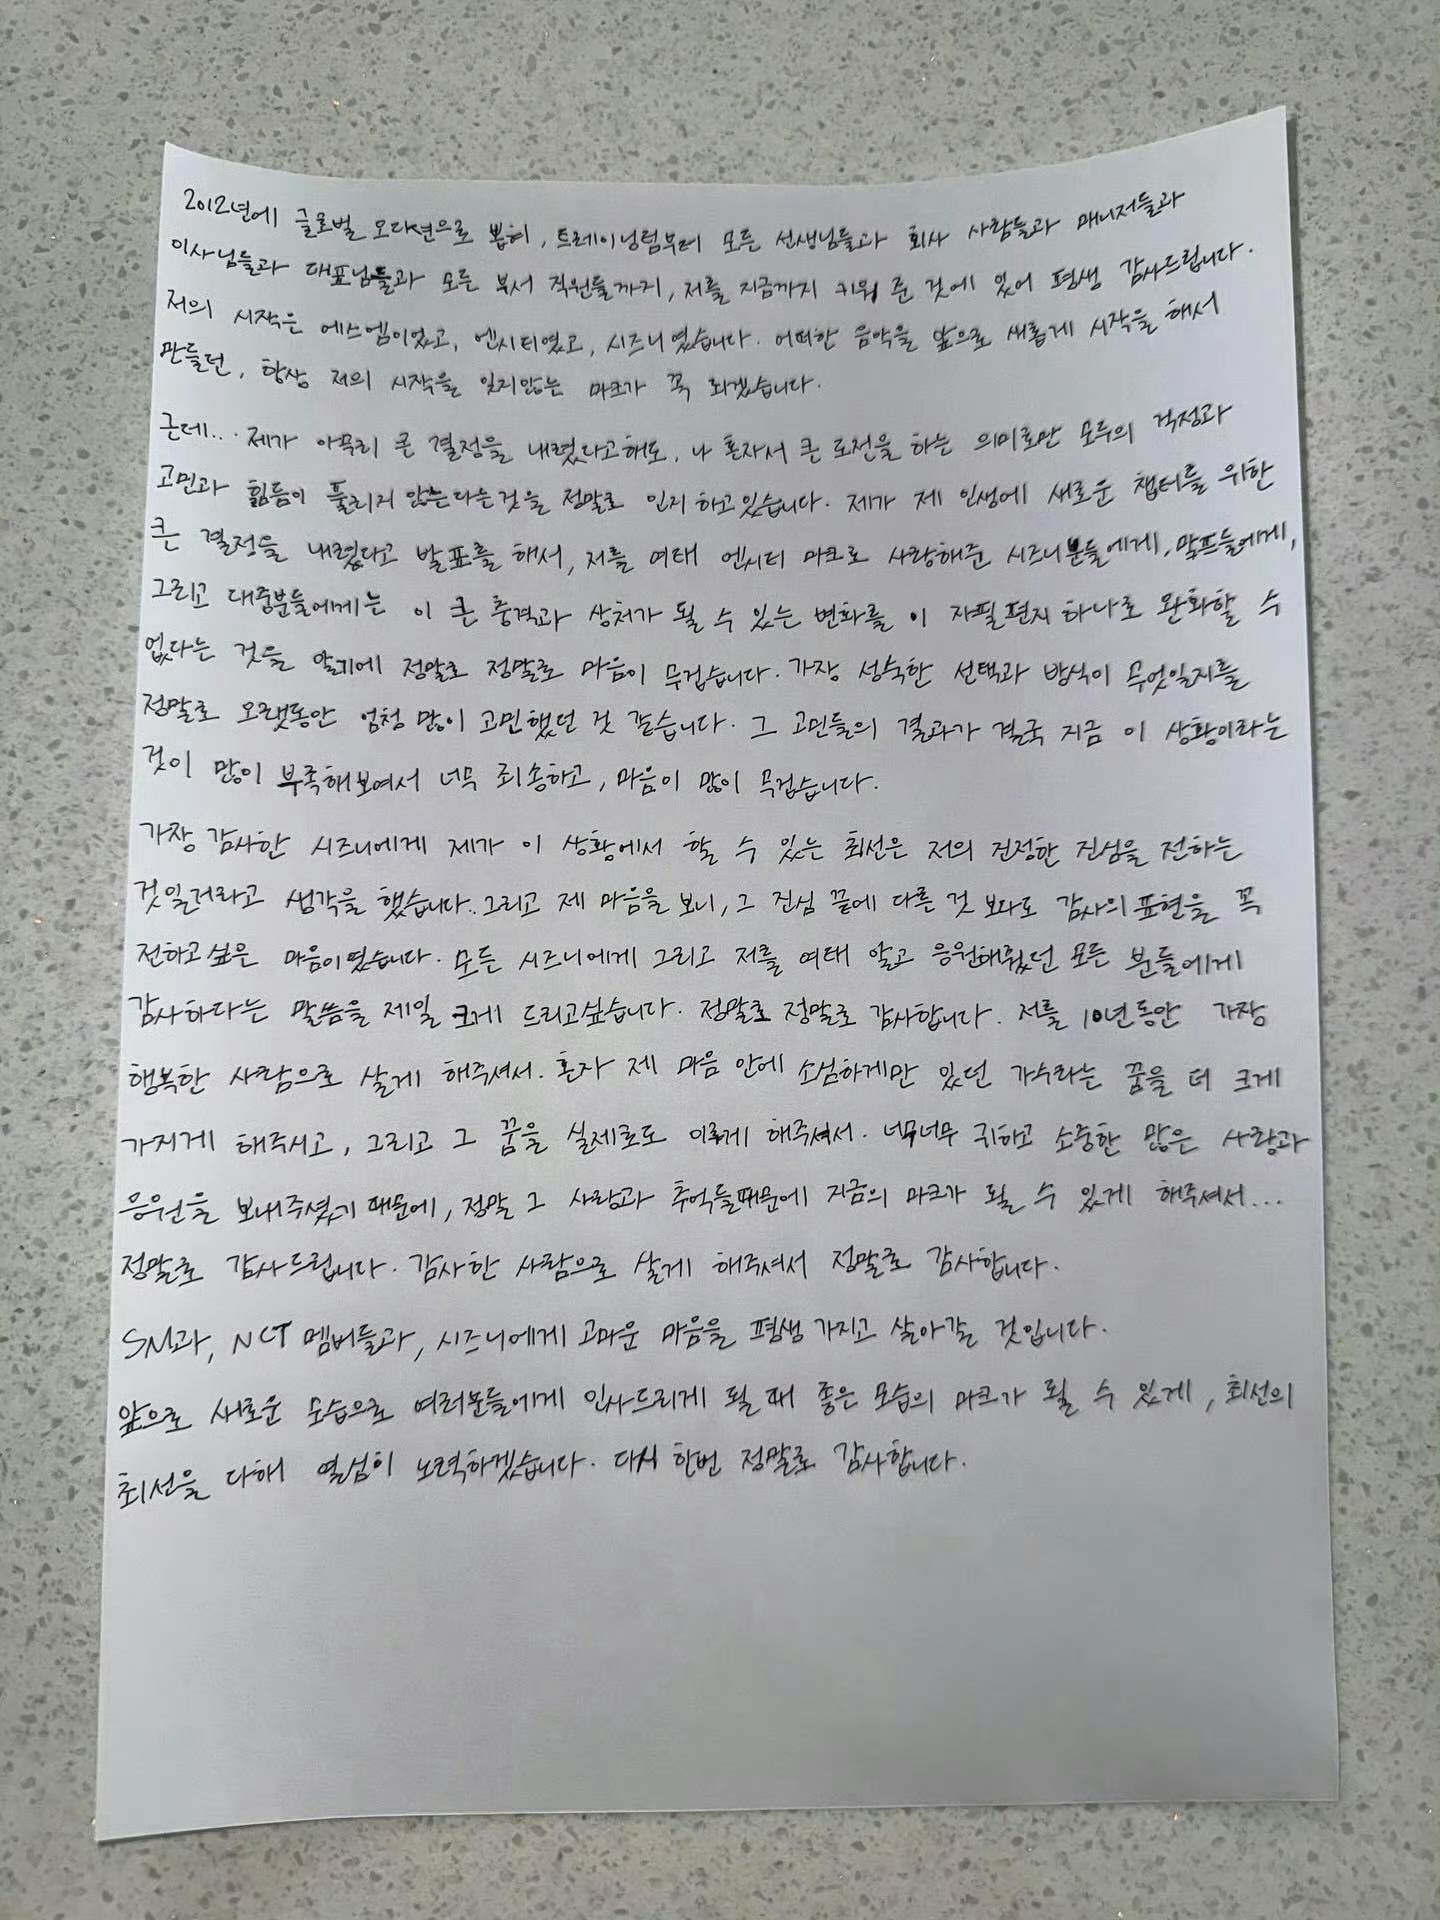 2012년에 글로벌 오디션으로 뽑혀, 트레이닝팀부터 모든 선생님들과 회사 사람들과 매니저들과
이사님들과 대표님들과 모든 부서 직원들까지, 저를 지금까지 키워 준 것에 있어 평생 감사드립니다.
저의 시작은 에스엠이었고, 엔시티였고, 시즈니였습니다. 어떠한 음악을 앞으로 새롭게 시작을 해서
만들던, 항상 저의 시작을 잊지않는 마크가 꼭 되겠습니다.
근데... 제가 아무리 큰 결정을 내렸다고해도, 나 혼자서 큰 도전을 하는 의미로만 모두의 걱정과
고민과 힘듦이 풀리지 않는다는것을 정말로 인지하고있습니다. 제가 제 인생에 새로운 챕터를 위한
큰 결정을 내렸다고 발표를 해서, 저를 여태 엔시티 마크로 사랑해준 시즈니분들에게, 말프들에게,
그리고 대중분들에게는 이 큰 충격과 상처가 될 수 있는 변화를 이 자필편지 하나로 완화할 수
없다는 것을 알기에 정말로 정말로 마음이 무겁습니다. 가장 성숙한 선택과 방식이 무엇일지를
정말로 오랫동안 엄청 많이 고민했던 것 같습니다. 그 고민들의 결과가 결국 지금 이 상황이라는
것이 많이 부족해보여서 너무 죄송하고, 마음이 많이 무겁습니다.
가장 감사한 시즈니에게 제가 이 상황에서 할 수 있는 최선은 저의 진정한 진심을 전하는
것일거라고 생각을 했습니다. 그리고 제 마음을 보니, 그 진심 끝에 다른 것 보다도 감사의 표현을 꼭
전하고싶은 마음이였습니다. 모든 시즈니에게 그리고 저를 여태 알고 응원해줬던 모든 분들에게
감사하다는 말씀을 제일 크게 드리고싶습니다. 정말로 정말로 감사합니다. 저를 10년동안 가장
행복한 사람으로 살게 해주셔서. 혼자 제 마음 안에 소심하게만 있던 가수라는 꿈을 더 크게
가지게 해주시고, 그리고 그 꿈을 실제로도 이루게 해주셔서. 너무너무 귀하고 소중한 많은 사랑과
응원을 보내주셨기 때문에, 정말 그 사랑과 추억들때문에 지금의 마크가 될 수 있게 해주셔서...
정말로 감사드립니다. 감사한 사람으로 살게 해주셔서 정말로 감사합니다.
SM과, NCT 멤버들과, 시즈니에게 고마운 마음을 평생 가지고 살아갈 것입니다.
앞으로 새로운 모습으로 여러분들에게 인사드리게 될 때 좋은 모습의 마크가 될 수 있게, 최선의
최선을 다해 열심히 노력하겠습니다. 다시 한번 정말로 감사합니다.